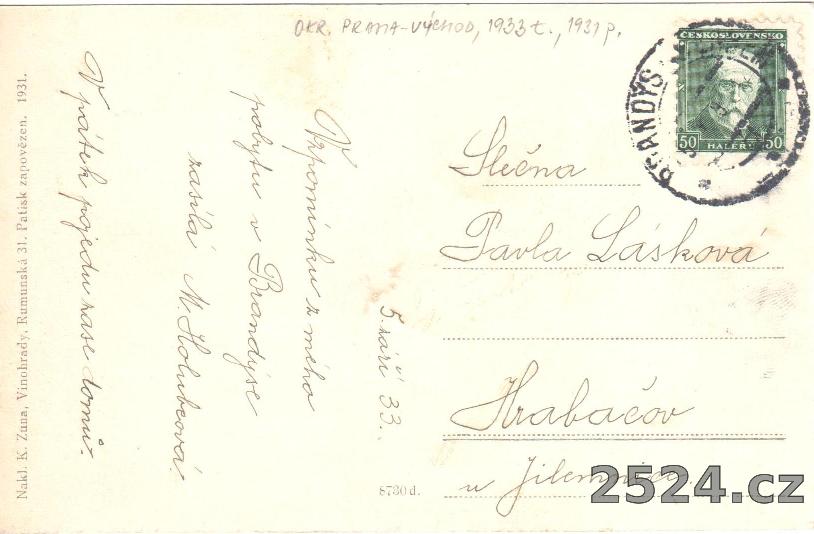 OKR. PRAHA-VÝCHOD, 1933 t., 1931 p.
ČESKOSLOVENSKO
50 HALÉŘŮ 50
BRANDÝS
5. září 33.
Vzpomínku z mého
pobytu v Brandýse
zasílá M. Holubcová.
V pátek pojedu zase domů.
Slečna
Pavla Lásková
Hrabačov
u Jilemnice
8730 d.
Nakl. K. Zuna, Vinohrady, Rumunská 31. Patisk zapovězen. 1931.
2524.cz